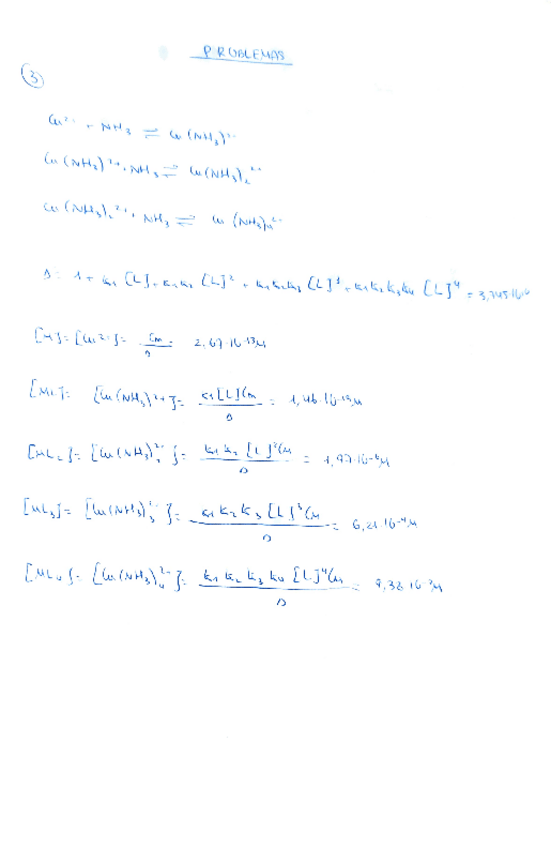 PROBLEMAS
3
Cu²⁺ + NH₃ ⇌ Cu(NH₃)²⁺
Cu(NH₃)²⁺ + NH₃ ⇌ Cu(NH₃)₂²⁺
Cu(NH₃)₂²⁺ + NH₃ ⇌ Cu(NH₃)
D = 1 + K₁[L] + K₁K₂[L]² + K₁K₂K₃[L]³ + K₁K₂K₃K₄[L]⁴ =
[M] = [Cu²⁺] = Cm / D = 2,67·10⁻¹³M
[ML] = [Cu(NH₃)²⁺] = K₁[L]Cm / D =
[ML₂] = [Cu(NH₃)₂²⁺] = K₁K₂[L]²Cm / D =
[ML₃] = [Cu(NH₃)₃²⁺] = K₁K₂K₃[L]³Cm / D = 6,21·10⁻⁴M
[ML₄] = [Cu(NH₃)₄²⁺] = K₁K₂K₃K₄[L]⁴Cm / D =